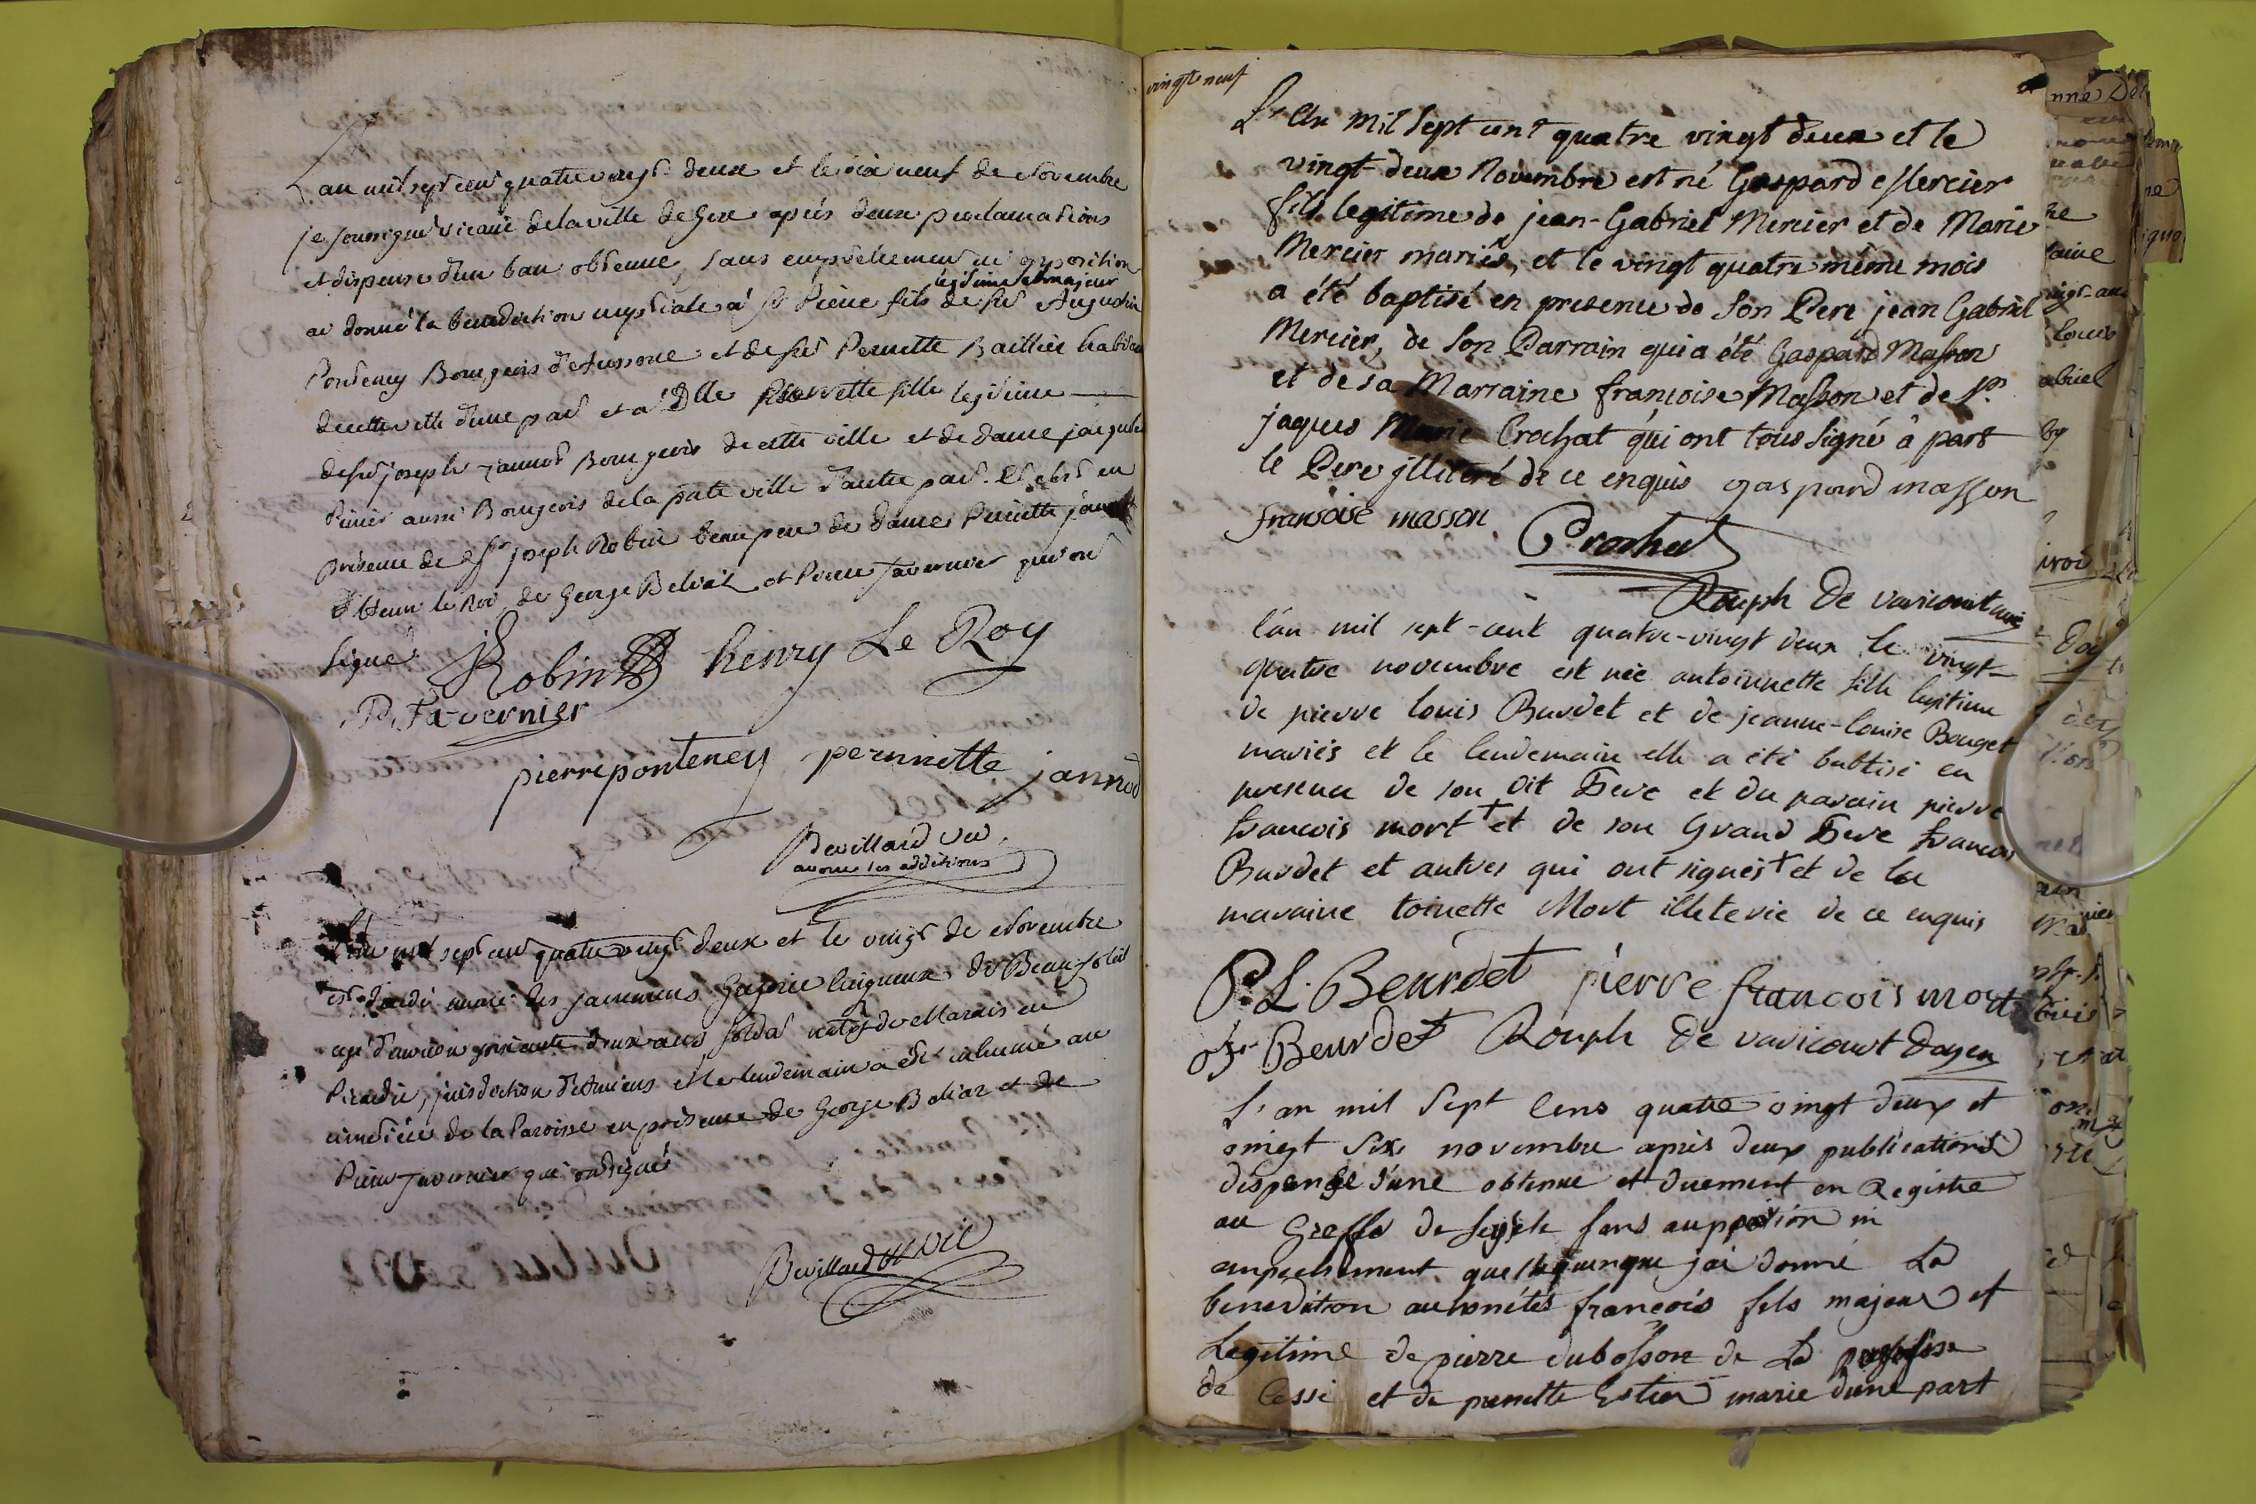 L'an mil sept cent quatre vingt deux et le dix neuf de Novembre
je soussigné vicaire de la ville de Gex après deux proclamations
et dispense d'un ban obtenue, sans empêchement ni opposition
légitime et majeur
ai donné la bénédiction nuptiale à Sr Pierre fils de feu Augustin
Ponteney Bourgeois d'Auxonne et de feue Pernette Baillier habitant
de cette ville d'une part et a Dlle Pernette fille legitime
de feu joseph jannot Bourgeois de cette ville et de dame jaqueline
aussi Bourgeois de la pnte ville d'autre part. Et en
présence de Sr joseph Robin beaupere de dame Pernette jannot
de George Baliat et Pierre Tavernier qui ont
signé
JRobin henry Le Roy
P. Tavernier
pierre ponteney pernnette jannod
Devillard vic.
avoue les additions
L'an mil sept cent quatre vingt deux et le vingt de Novembre
est décédé muni des sacremens dit Beau Soleil
agé d'environ soixante deux ans soldat natif du Marais en
Picardie, jurisdiction d'Amiens et le lendemain a été inhumé au
cimetière de la Paroisse en présence de George Baliat et de
Pierre Tavernier qui ont signé
Devillard Vic
vingt neuf
L'an mil sept cent quatre vingt deux et le
vingt-deux Novembre est né Gaspard Mercier
fils legitime de jean-Gabriel Mercier et de Marie
Mercier mariés, et le vingt quatre même mois
a été baptisé en presence de son Pere jean Gabriel
Mercier, de son Parrain qui a été Gaspard Masson
et de sa Marraine françoise Masson et de Sr
jaques Marie Crochat qui ont tous signé à part
le Pere illiteré de ce enquis gaspard masson
fransoise masson
Crochat
Rouph de varicourt curé
l'an mil sept-cent quatre-vingt deux le vingt-
quatre novembre est née antoinnette fille legitime
de pierre louis Burdet et de jeanne-louise Bouget
mariés et le lendemain elle a été babtisé en
presence de son dit Pere et du parain pierre
francois mort + et de son Grand Pere francois
Burdet et autres qui ont signés + et de la
maraine toinette Mort illeterée de ce enquis
P. L. Beurdet pierre francois mort
Beurdet Rouph de varicourt doyen
L'an mil sept cens quatre vingt deux et
vingt six novembre après deux publications
dispense d'une obtenue et duement en Registré
au Greffe de sans aupposition ni
anpechement quelquonque jai donné La
benediction au honétes francois fils majeur et
Legitime de pierre dubosson de La paroisse
de Cessi et de pernette marie d'une part